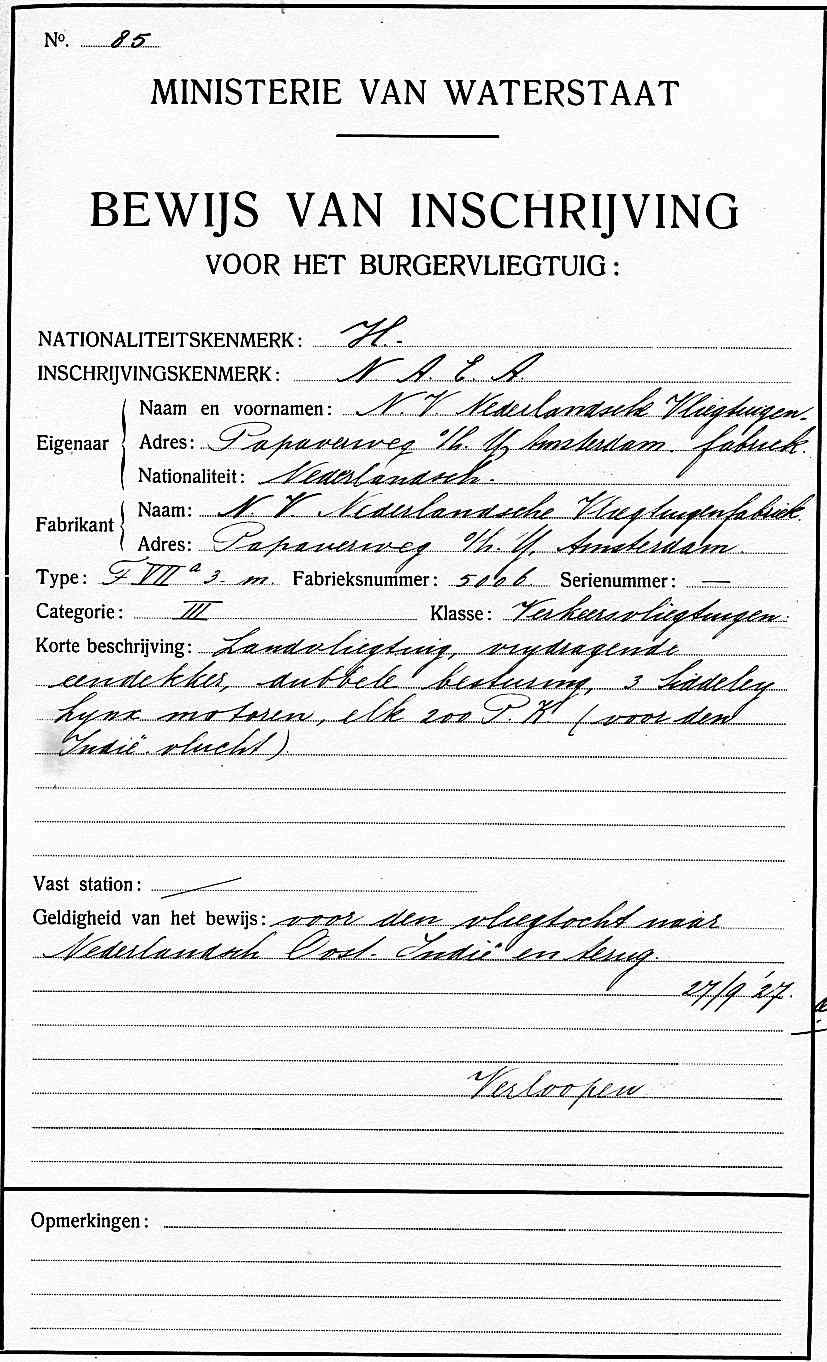 No. 85
MINISTERIE VAN WATERSTAAT
BEWIJS VAN INSCHRIJVING
VOOR HET BURGERVLIEGTUIG:
NATIONALITEITSKENMERK: H.
INSCHRIJVINGSKENMERK: N A. E. A.
Eigenaar
Naam en voornamen: N. V. Nederlandsche Vliegtuigen-
Adres: Papaverweg o/h. Y, Amsterdam. fabriek.
Nationaliteit: Nederlandsch.
Fabrikant
Naam: N. V. Nederlandsche Vliegtuigenfabriek.
Adres: Papaverweg o/h. Y, Amsterdam.
Type: F. VII a 3. m. Fabrieksnummer: 5006 Serienummer: —
Categorie: III Klasse: Verkeersvliegtuigen.
Korte beschrijving: Landvliegtuig, vrijdragende
eendekker, dubbele besturing, 3 Siddeley
Lynx motoren, elk 200 P. K (voor den
Indië-vlucht)
Vast station: —
Geldigheid van het bewijs: voor den vliegtocht naar
Nederlandsch Oost-Indië en terug.
27/9 '27.
Verloopen
Opmerkingen: